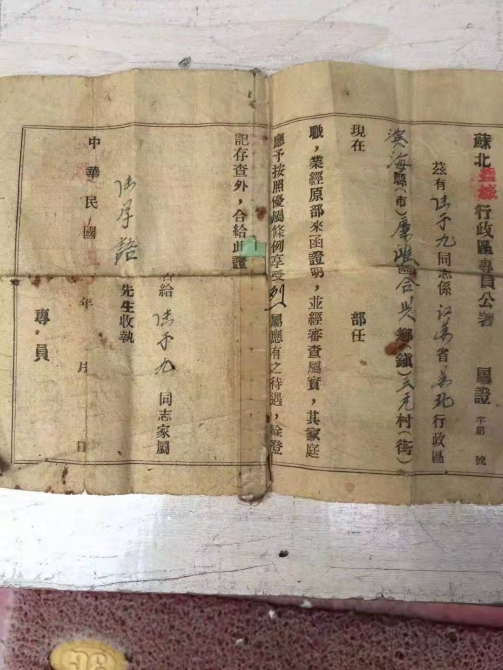 蘇北鹽城行政區專員公署 屬證 字第 號
茲有 同志係江蘇省蘇北行政區
濱海縣(市) 區合興鄉(鎮)三元村(街)
現在 部任
職,業經原部來函證明,並經審查屬實,其家庭
應予按照優屬條例享受烈屬應有之待遇,除登
記存查外,合給此證
右給 同志家屬
先生收執
中華民國 年 月 日
專員